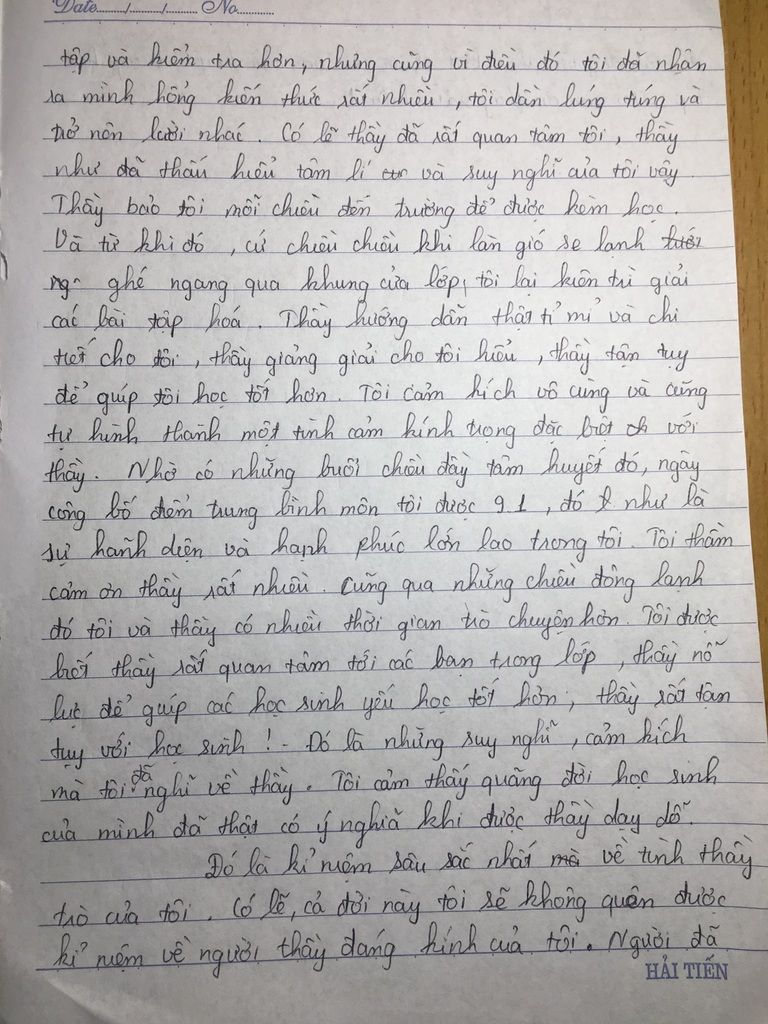 Date........./........./......... No............
tập và kiểm tra hơn, nhưng cũng vì điều đó tôi đã nhận
ra mình hổng kiến thức rất nhiều, tôi dần lúng túng và
trở nên lười nhác. Có lẽ thầy đã rất quan tâm tôi, thầy
như đã thấu hiểu tâm lí và suy nghĩ của tôi vậy.
Thầy bảo tôi mỗi chiều đến trường để được kèm học.
Và từ khi đó, cứ chiều chiều khi làn gió se lạnh
ghé ngang qua khung cửa lớp, tôi lại kiên trì giải
các bài tập hoá. Thầy hướng dẫn thật tỉ mỉ và chi
tiết cho tôi, thầy giảng giải cho tôi hiểu, thầy tận tụy
để giúp tôi học tốt hơn. Tôi cảm kích vô cùng và cũng
tự hình thành một tình cảm kính trọng đặc biệt với
thầy. Nhờ có những buổi chiều đầy tâm huyết đó, ngày
công bố điểm trung bình môn tôi được 9.1, đó như là
sự hãnh diện và hạnh phúc lớn lao trong tôi. Tôi thầm
cảm ơn thầy rất nhiều. Cũng qua những chiều đông lạnh
đó tôi và thầy có nhiều thời gian trò chuyện hơn. Tôi được
biết thầy rất quan tâm tới các bạn trong lớp, thầy nỗ
lực để giúp các học sinh yếu học tốt hơn, thầy rất tận
tụy với học sinh! - Đó là những suy nghĩ, cảm kích
mà tôi đã nghĩ về thầy. Tôi cảm thấy quãng đời học sinh
của mình đã thật có ý nghĩa khi được thầy dạy dỗ.
Đó là kỉ niệm sâu sắc nhất về tình thầy
trò của tôi. Có lẽ, cả đời này tôi sẽ không quên được
kỉ niệm về người thầy đáng kính của tôi. Người đã
HẢI TIẾN